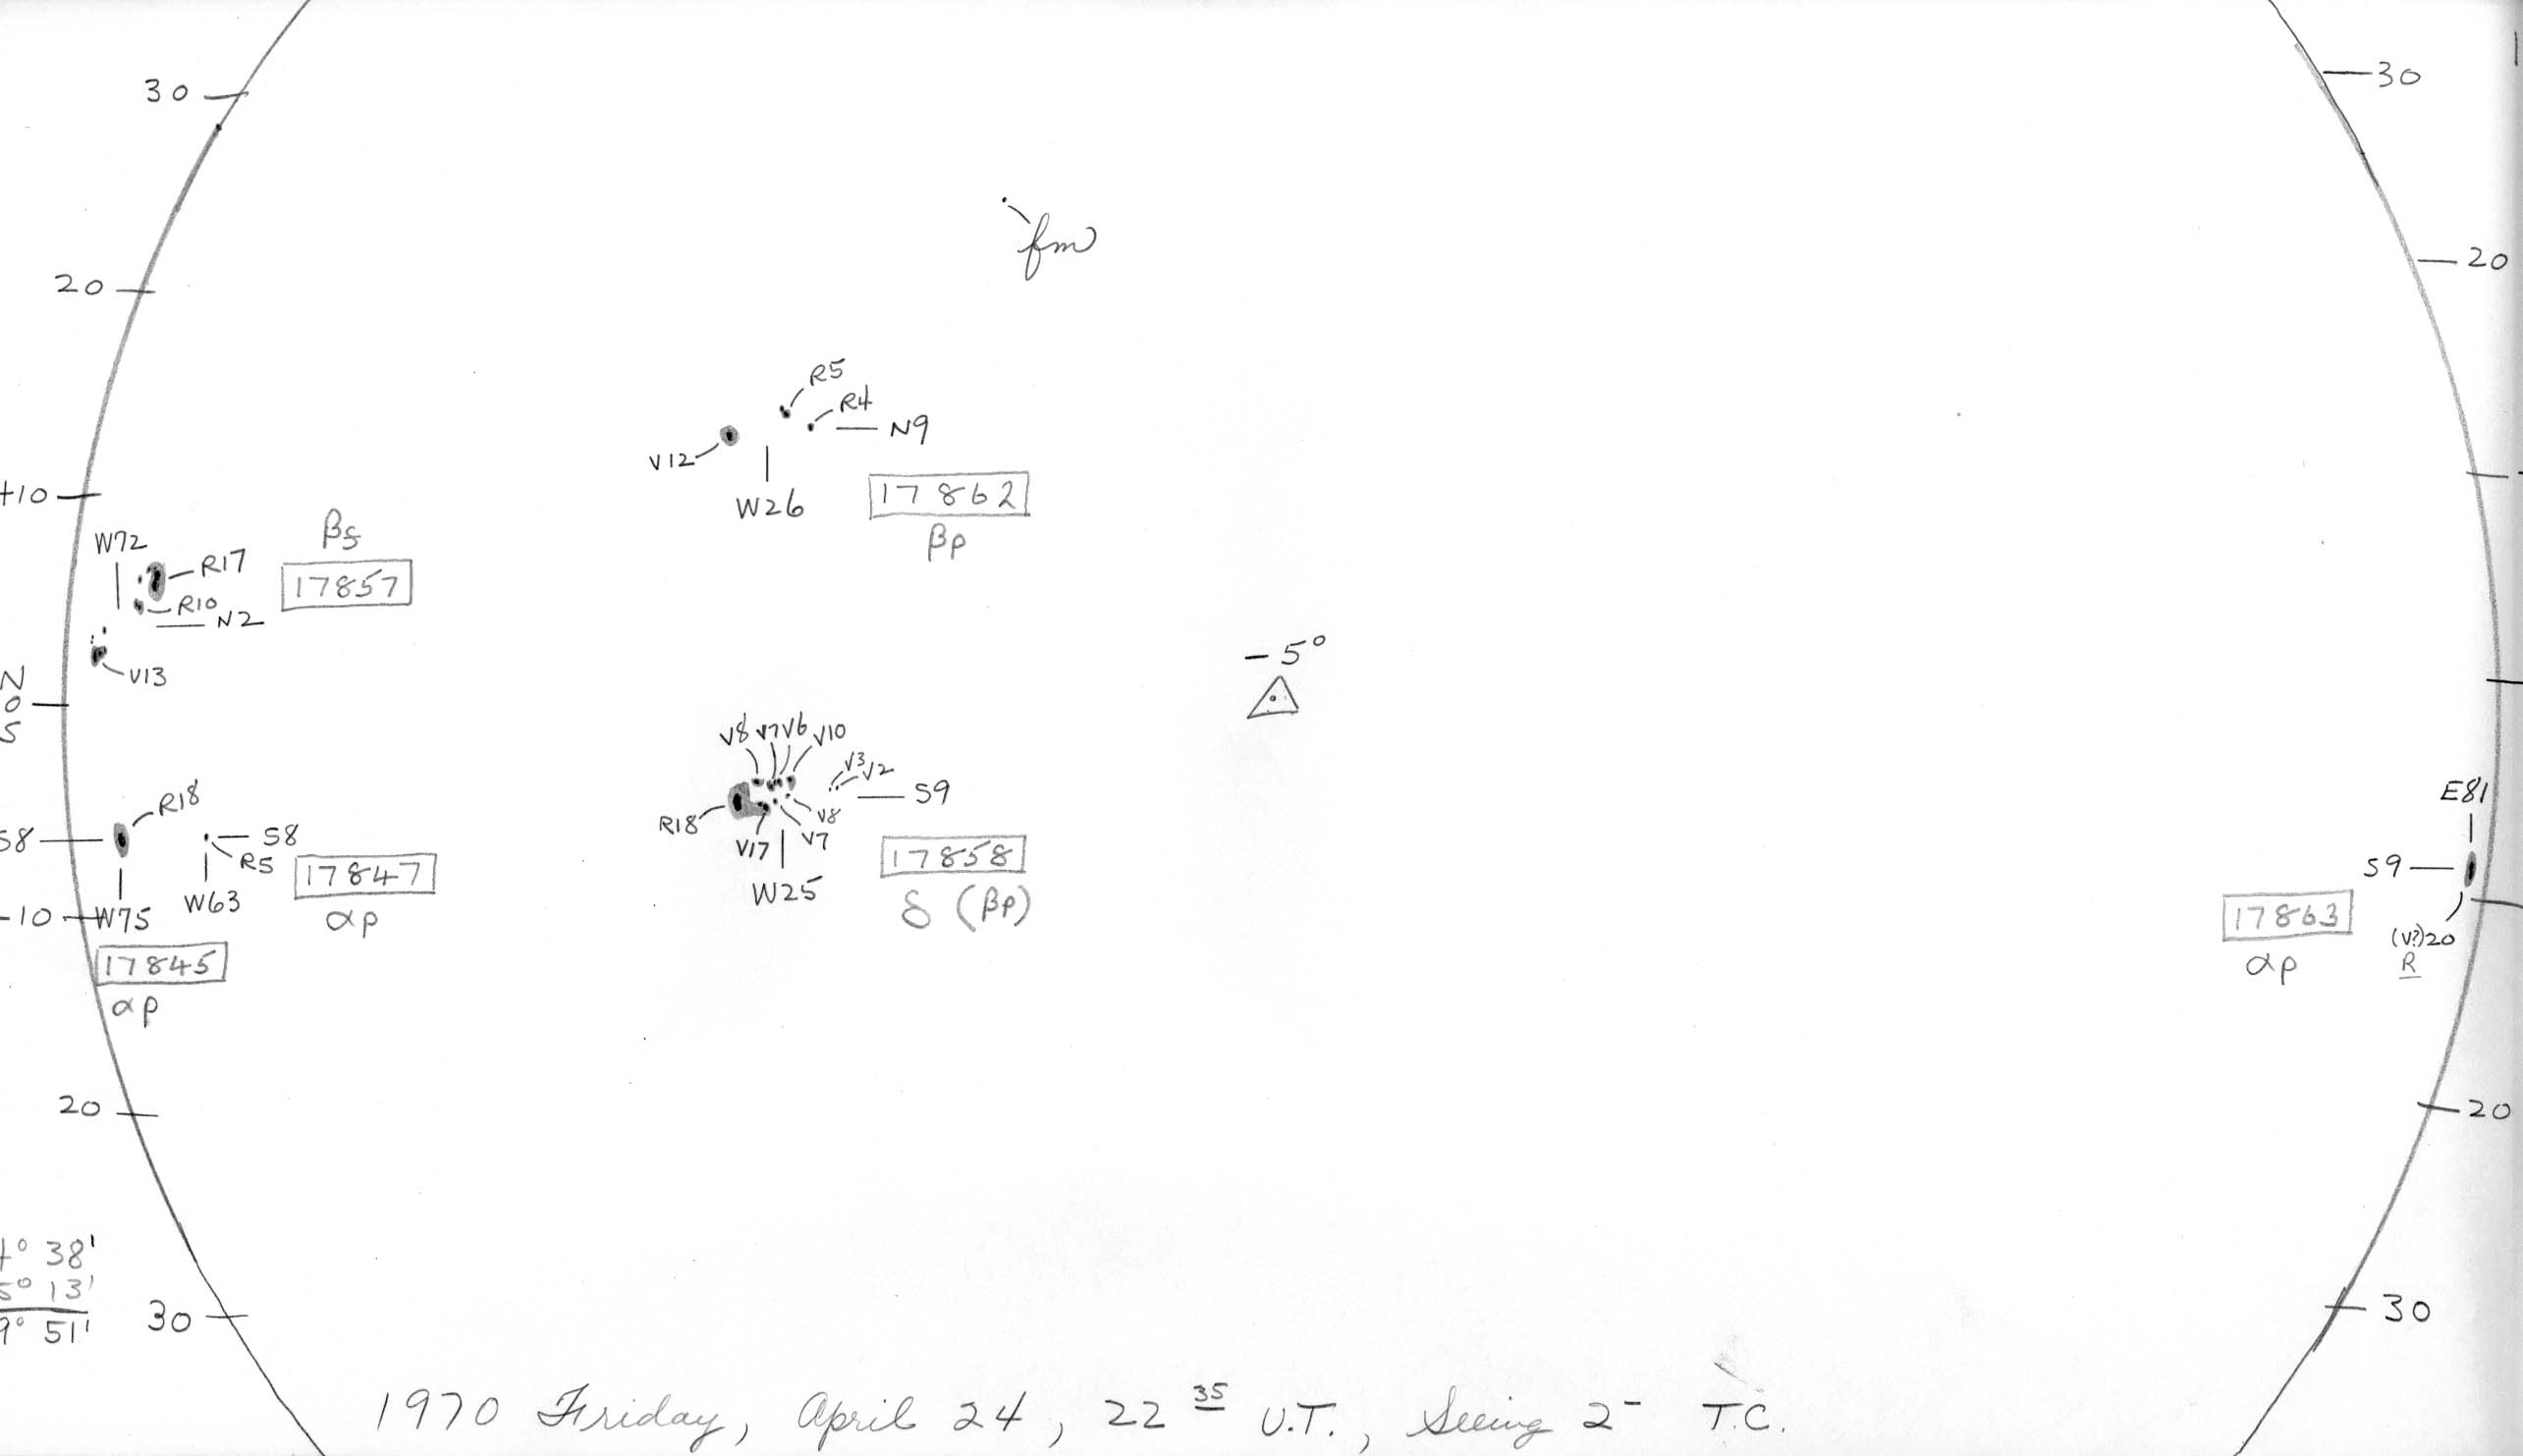 30
30
fm
20
20
R5
R4
N9
V12
W26
17 862
βp
+10
W72
βf
R17
17857
R10
N2
V13
N
0
S
- 5°
V8 V7 V6 V10
V3 V2
S9
R18
V8
V7
V17
W25
17858
δ (βp)
R18
S8
S8
R5
17847
αp
W63
-10
W75
17845
αp
E81
S9
17863
αp
(V?)20
R
20
20
4° 38'
5° 13'
9° 51'
30
30
1970 Friday, April 24, 22 35 U.T., Seeing 2- T.C.